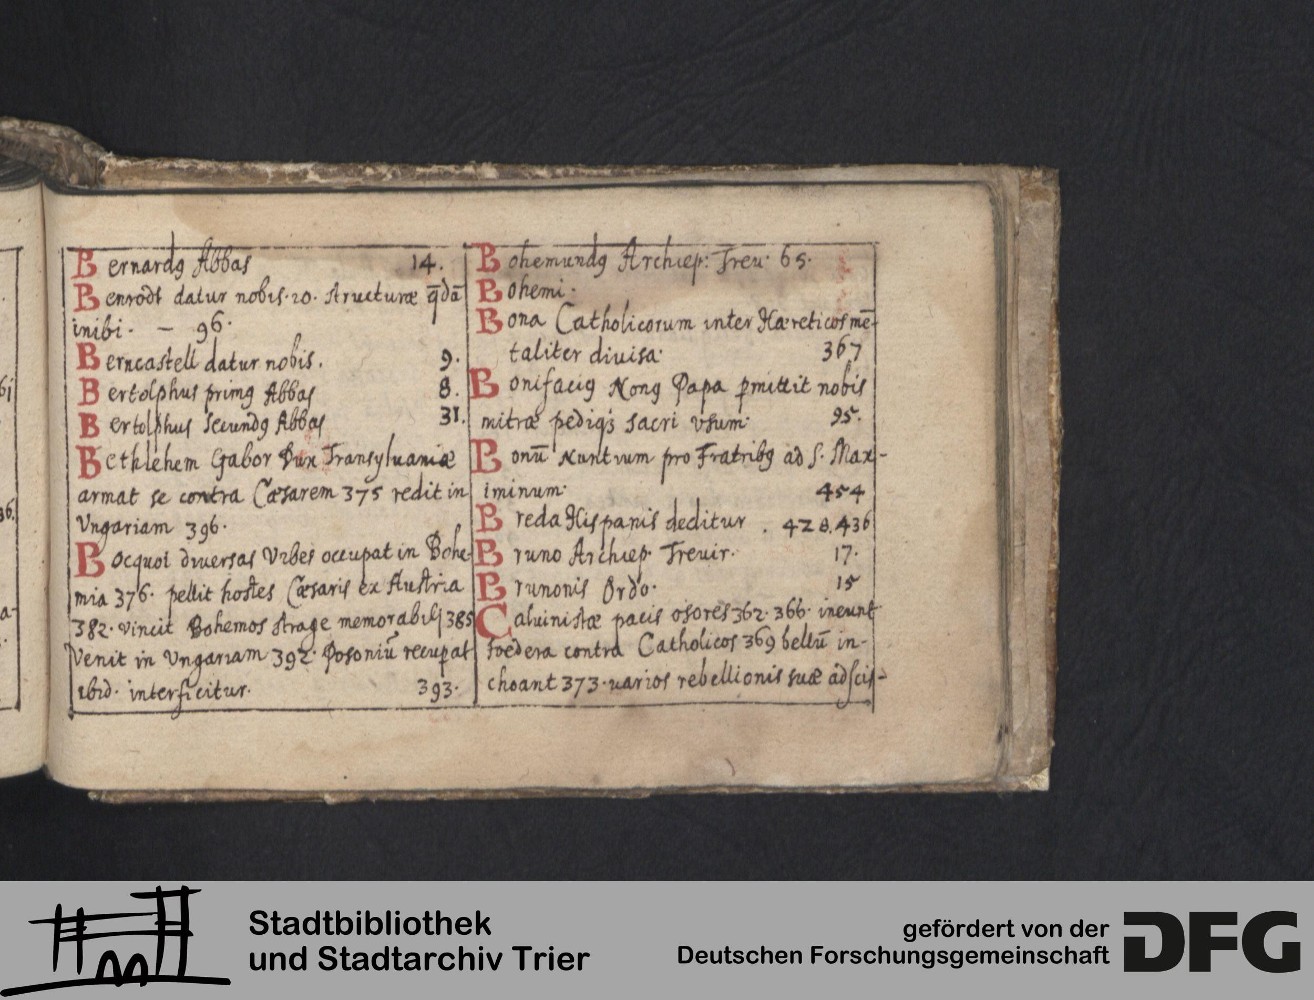 Bernardꝰ Abbas 14.
Benrodt datur nobis. 20. structuræ q̄dā
inibi. — 96.
Berncastell datur nobis. 9.
Bertolphus primꝰ Abbas 8.
Bertolphus secundꝰ Abbas 31.
Bethlehem Gabor Dux Transyluaniæ
armat se contra Cæsarem 375 redit in
Vngariam 396.
Bocquoi diuersas Vrbes occupat in Bohe-
mia 376. pellit hostes Cæsaris ex Austria
382. vincit Bohemos strage memorabili 385
Venit in Vngariam 392. Posoniū recuꝑat
ibid. interficitur. 393.
Bohemundꝰ Archiep: Treu. 65.
Bohemi.
Bona Catholicorum inter Hæreticos mē-
taliter diuisa. 367
Bonifaciꝰ Nonꝰ Papa ꝑmittit nobis
mitræ pediq́ꝫ sacri vsum. 95.
Bonū Nuntium pro Fratribꝰ ad S. Max-
iminum. 454
Breda Hispanis deditur. 428. 436
Bruno Archiep. Treuir. 17.
Brunonis Ordo. 15
Caluinistæ pacis osores 362. 366. ineunt
foedera contra Catholicos 369 bellū in-
choant 373. uarios rebellionis suæ adscis-
Stadtbibliothek
und Stadtarchiv Trier
gefördert von der
Deutschen Forschungsgemeinschaft
DFG